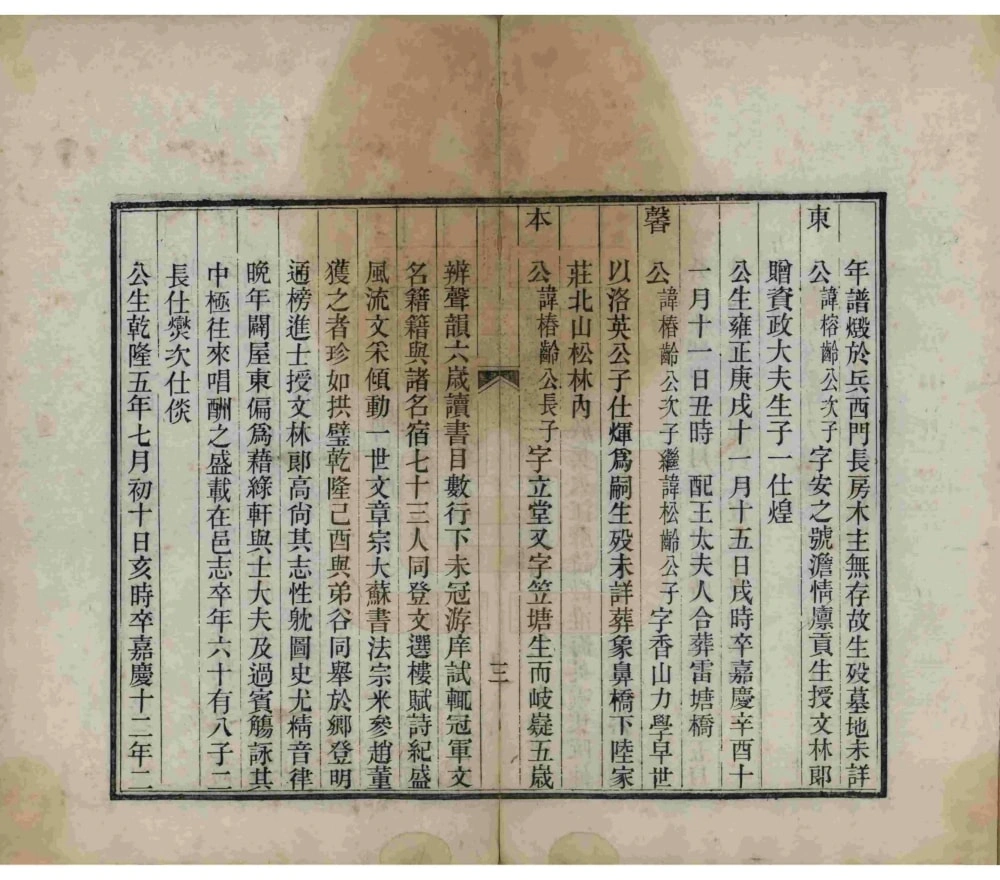 年譜燬於兵西門長房木主無存故生歿墓地未詳
東公諱榕齡公次子字安之號澹情廪貢生授文林郎
贈資政大夫生子一仕煌
公生雍正庚戌十一月十五日戌時卒嘉慶辛酉十
一月十一日丑時配王太夫人合葬雷塘橋
馨公諱椿齡公次子繼諱松齡公子字香山力學早世
以洛英公子仕煇爲嗣生歿未詳葬象鼻橋下陸家
莊北山松林內
本公諱椿齡公長子字立堂又字笠塘生而岐嶷五歲
三
辨聲韻六歲讀書目數行下未冠游庠試輒冠軍文
名籍籍與諸名宿七十三人同登文選樓賦詩紀盛
風流文采傾動一世文章宗大蘇書法宗米參趙董
獲之者珍如拱璧乾隆己酉與弟谷同舉於鄉登明
通榜進士授文林郎高尚其志性躭圖史尤精音律
晩年闢屋東偏爲藉綠軒與士大夫及過賓觴詠其
中極往來唱酬之盛載在邑志卒年六十有八子二
長仕爕次仕倓
公生乾隆五年七月初十日亥時卒嘉慶十二年二